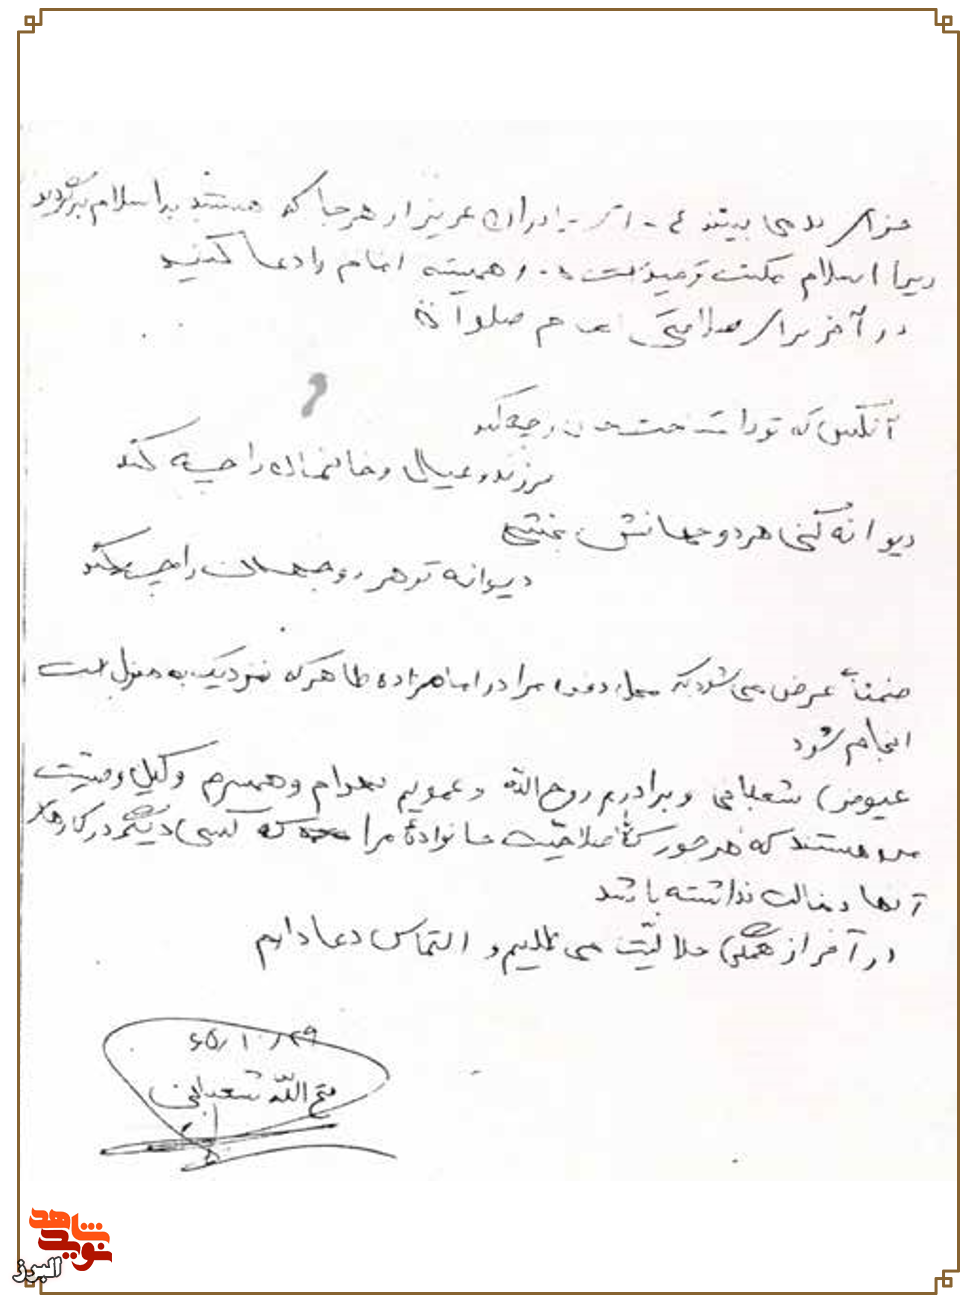 سزای بد می بینند ۴ - ای برادران عزیز از هر جا که هستید به اسلام برگردید
زیرا اسلام مکتب توحید است ۵ - و همیشه امام را دعا کنید
در آخر برای سلامتی امام صلوات
آنکس که تو را شناخت جان را چه کند
فرزند و عیال و خانمان را چه کند
دیوانه کنی هر دو جهانش بخشی
دیوانه تو هر دو جهان را چه کند
ضمناً عرض می شود که محل دفن مرا در امامزاده طاهر که نزدیک به منزل است
انجام شود
عیوض شعبانی و برادرم روح الله و عمویم بهرام و همسرم وکیل وصیت
من هستند که هر جور که صلاحیت خانوادهٔ مرا که کسی دیگر در کارهای
آنها دخالت نداشته باشد
در آخر از همگی حلالیت می طلبم و التماس دعا دارم
۶۵/۱۰/۲۹
فتح الله شعبانی
نوید شاهد
البرز